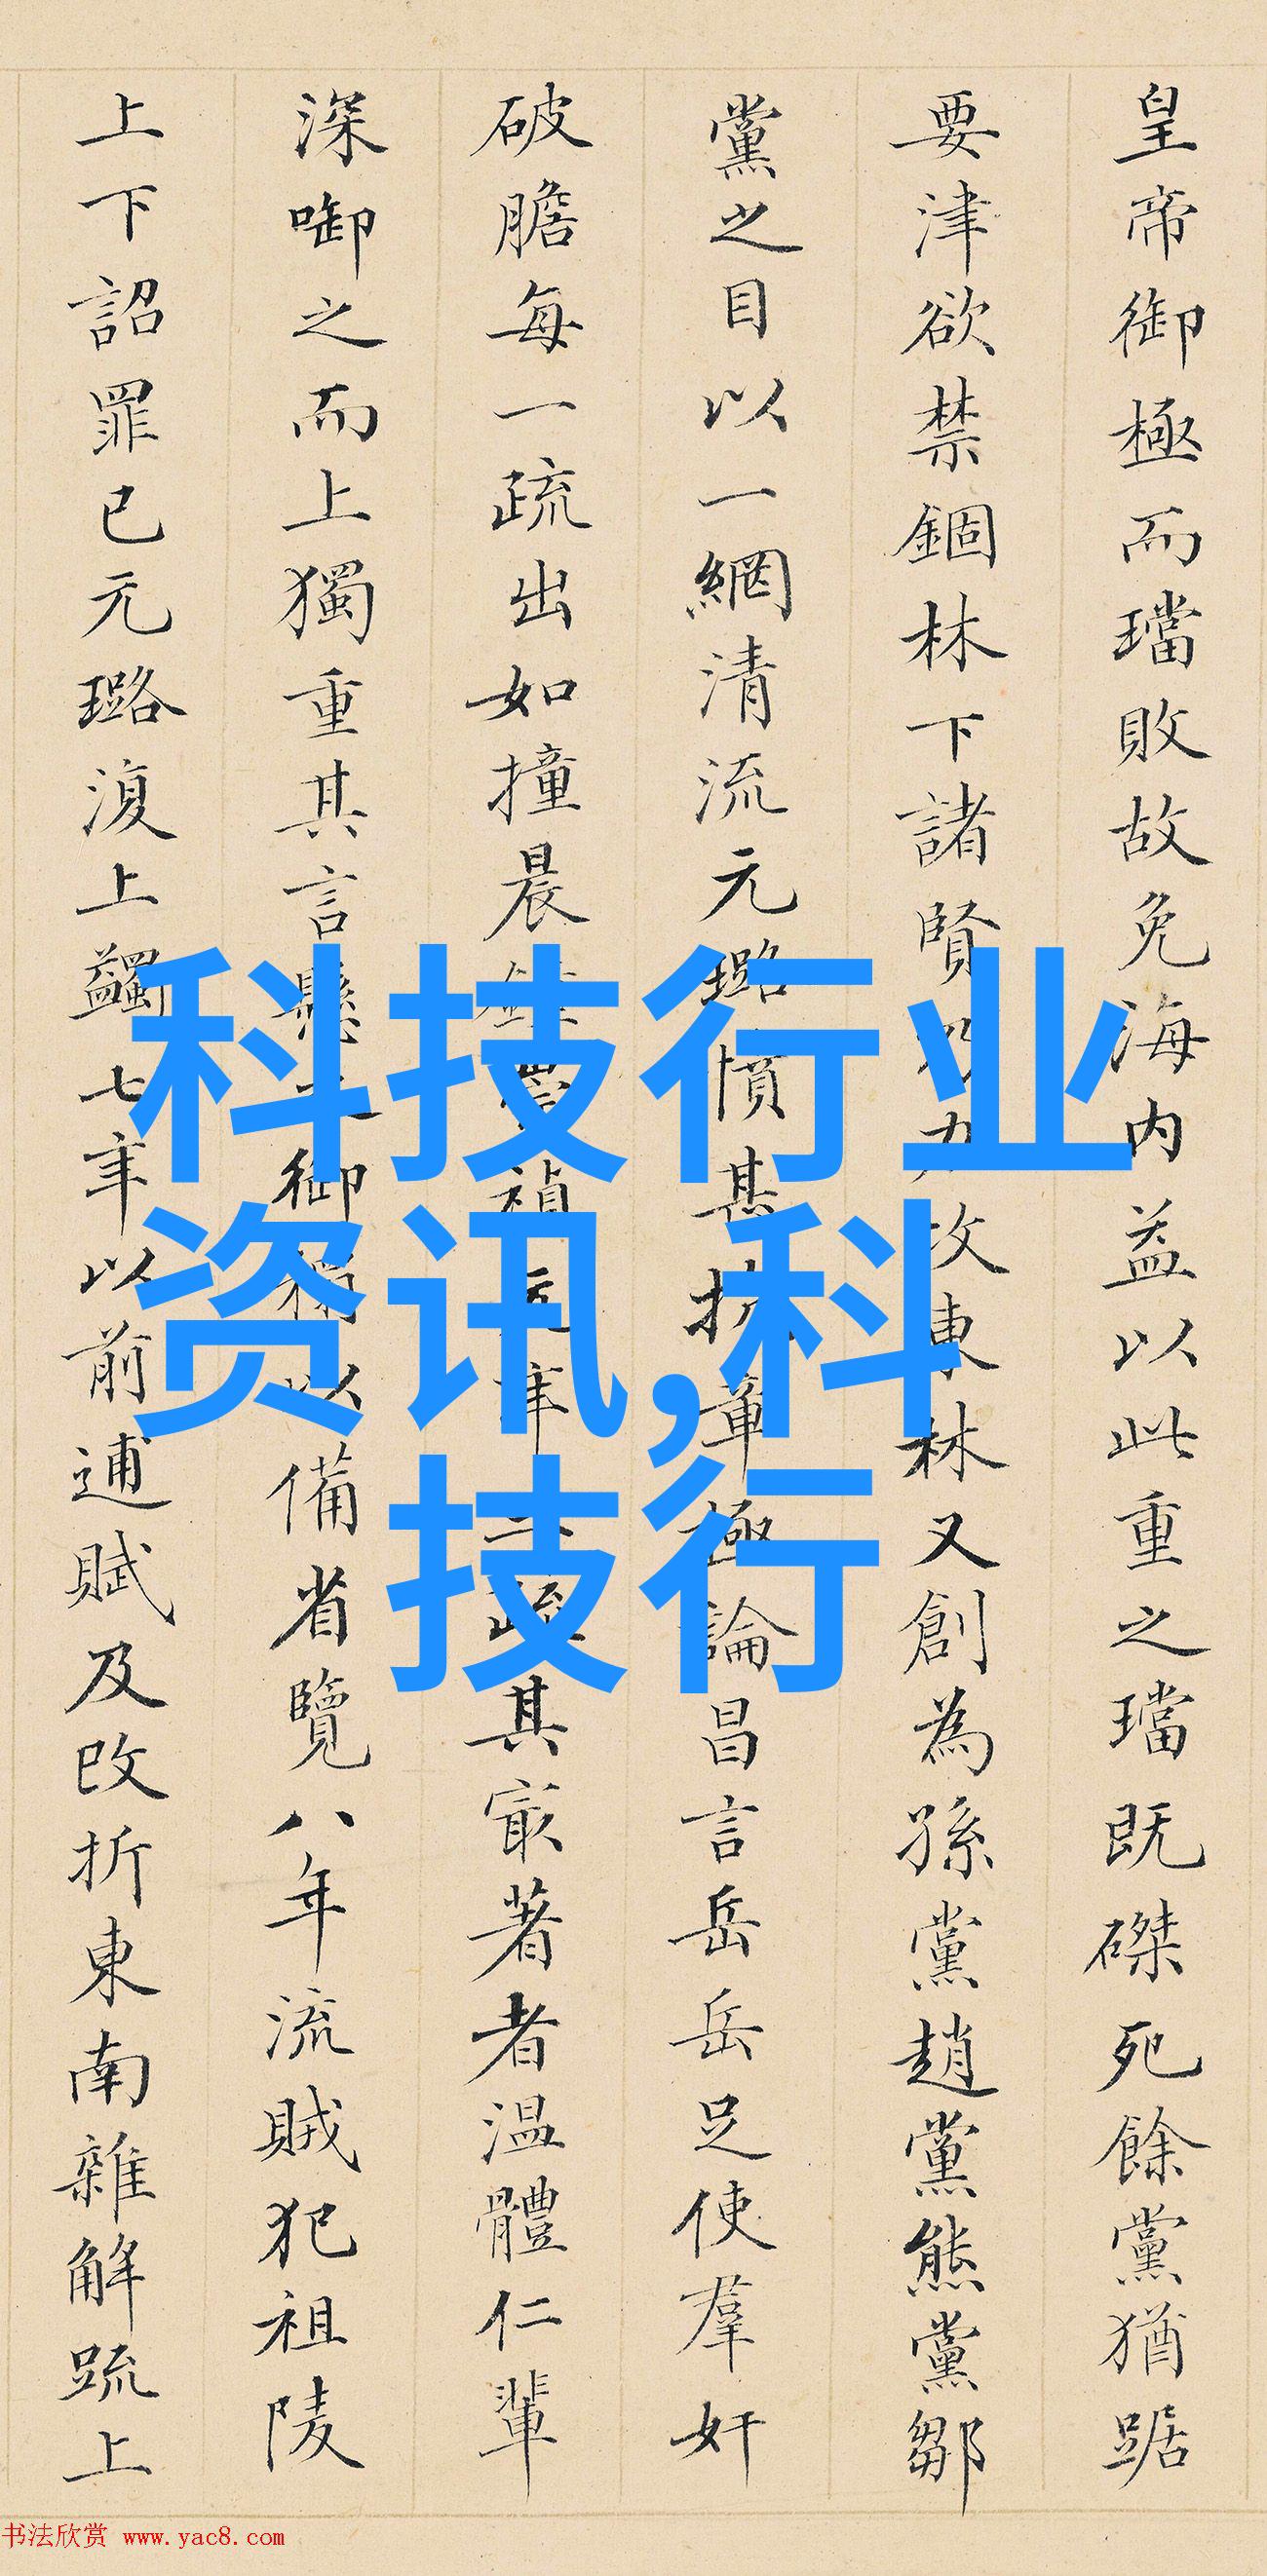 皇帝御極而璫敗故免海内益以此重之璫既磔死餘黨猶踞
要津欲禁錮林下諸賢力攻東林又創為孫黨趙黨熊黨鄒
黨之目以一網清流元璐憤甚抗章極論昌言岳岳足使羣奸
破膽每一疏出如撞晨鐘崇禎元年疏其最著者溫體仁輩
深啣之而上獨重其言懸之御榻以備省覽八年流賊犯祖陵
上下詔罪已元璐復上蠲七年以前逋賦及改折東南雜解疏上
科技行业
资讯,科
技行
书法欣赏 www.yac8.com